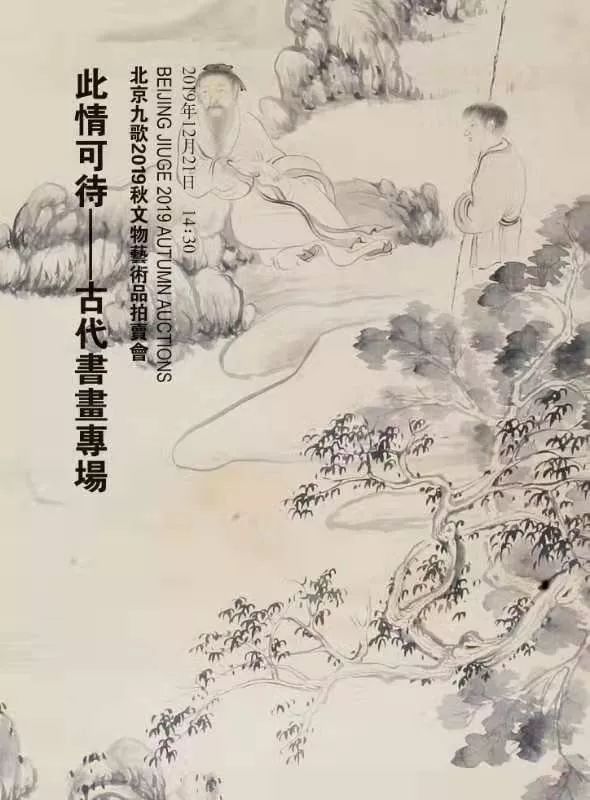 此情可待——古代書畫專場
北京九歌2019秋文物藝術品拍賣會
BEIJING JIUGE 2019 AUTUMN AUCTIONS
2019年12月21日 14:30